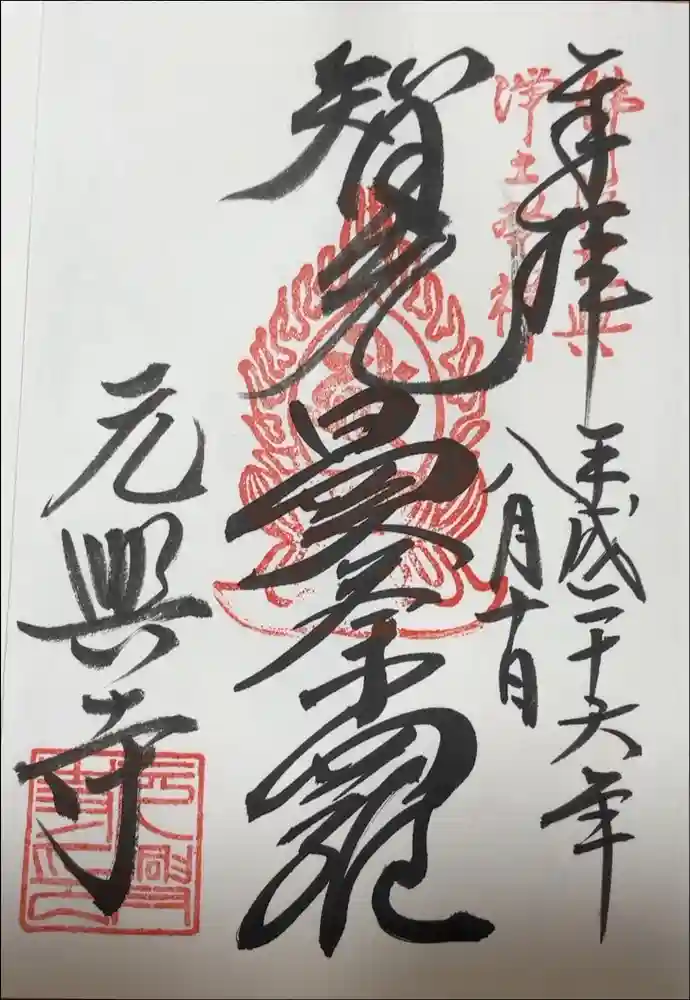 奉拝
佛法元興
浄土発祥
平成二十六年
八月十日
智光曼荼羅
元興寺